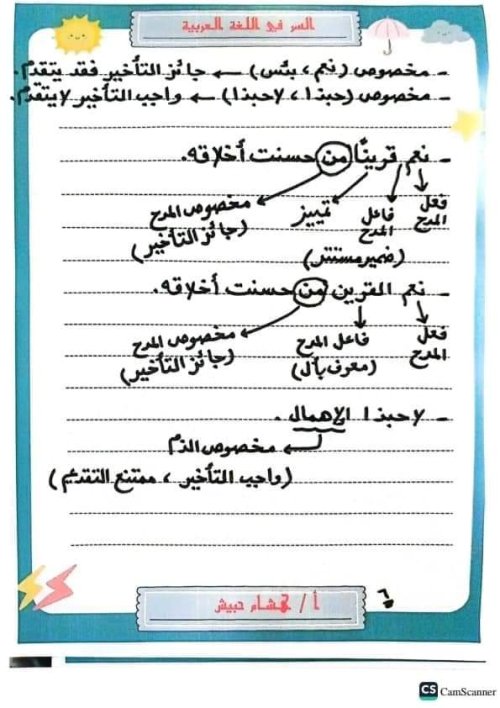 السر في اللغة العربية
- مخصوص (نعم ، بئس) ← جائز التأخير فقد يتقدم.
- مخصوص (حبذا ، لاحبذا) ← واجب التأخير لايتقدم.
- نعم قرينًا من حسنت أخلاقه.
فعل المدح
فاعل المدح (ضمير مستتر)
تمييز
مخصوص المدح (جائز التأخير)
- نعم القرين من حسنت أخلاقه.
فعل المدح
فاعل المدح (معرف بأل)
مخصوص المدح (جائز التأخير)
- لاحبذا الإهمال .
مخصوص الذم
(واجب التأخير ، ممتنع التقديم)
أ / هشام حبيش
٦
CS CamScanner